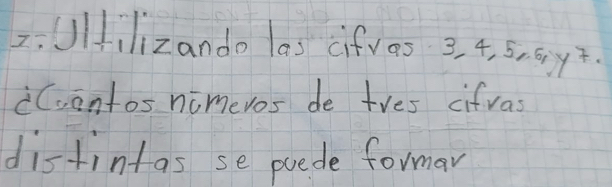 2. Ultilizando las cifras 3, 4, 5, 6, y 7.
¿Cuántos números de tres cifras
distintas se puede formar